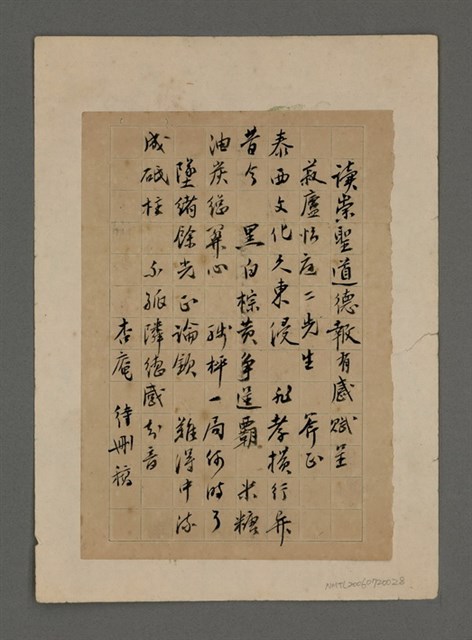 讀崇聖道德報有感賦呈
廬怡庭二先生 斧正
泰西文化久東浸 非孝橫行異
昔今 黑白棕黃爭逞霸 米糖
油炭總關心 殘枰一局何時了
墜緒餘光正論欽 難得中流
成砥柱 不孤隣德感知音
杏庵 待刪稿
NMTL20060720028